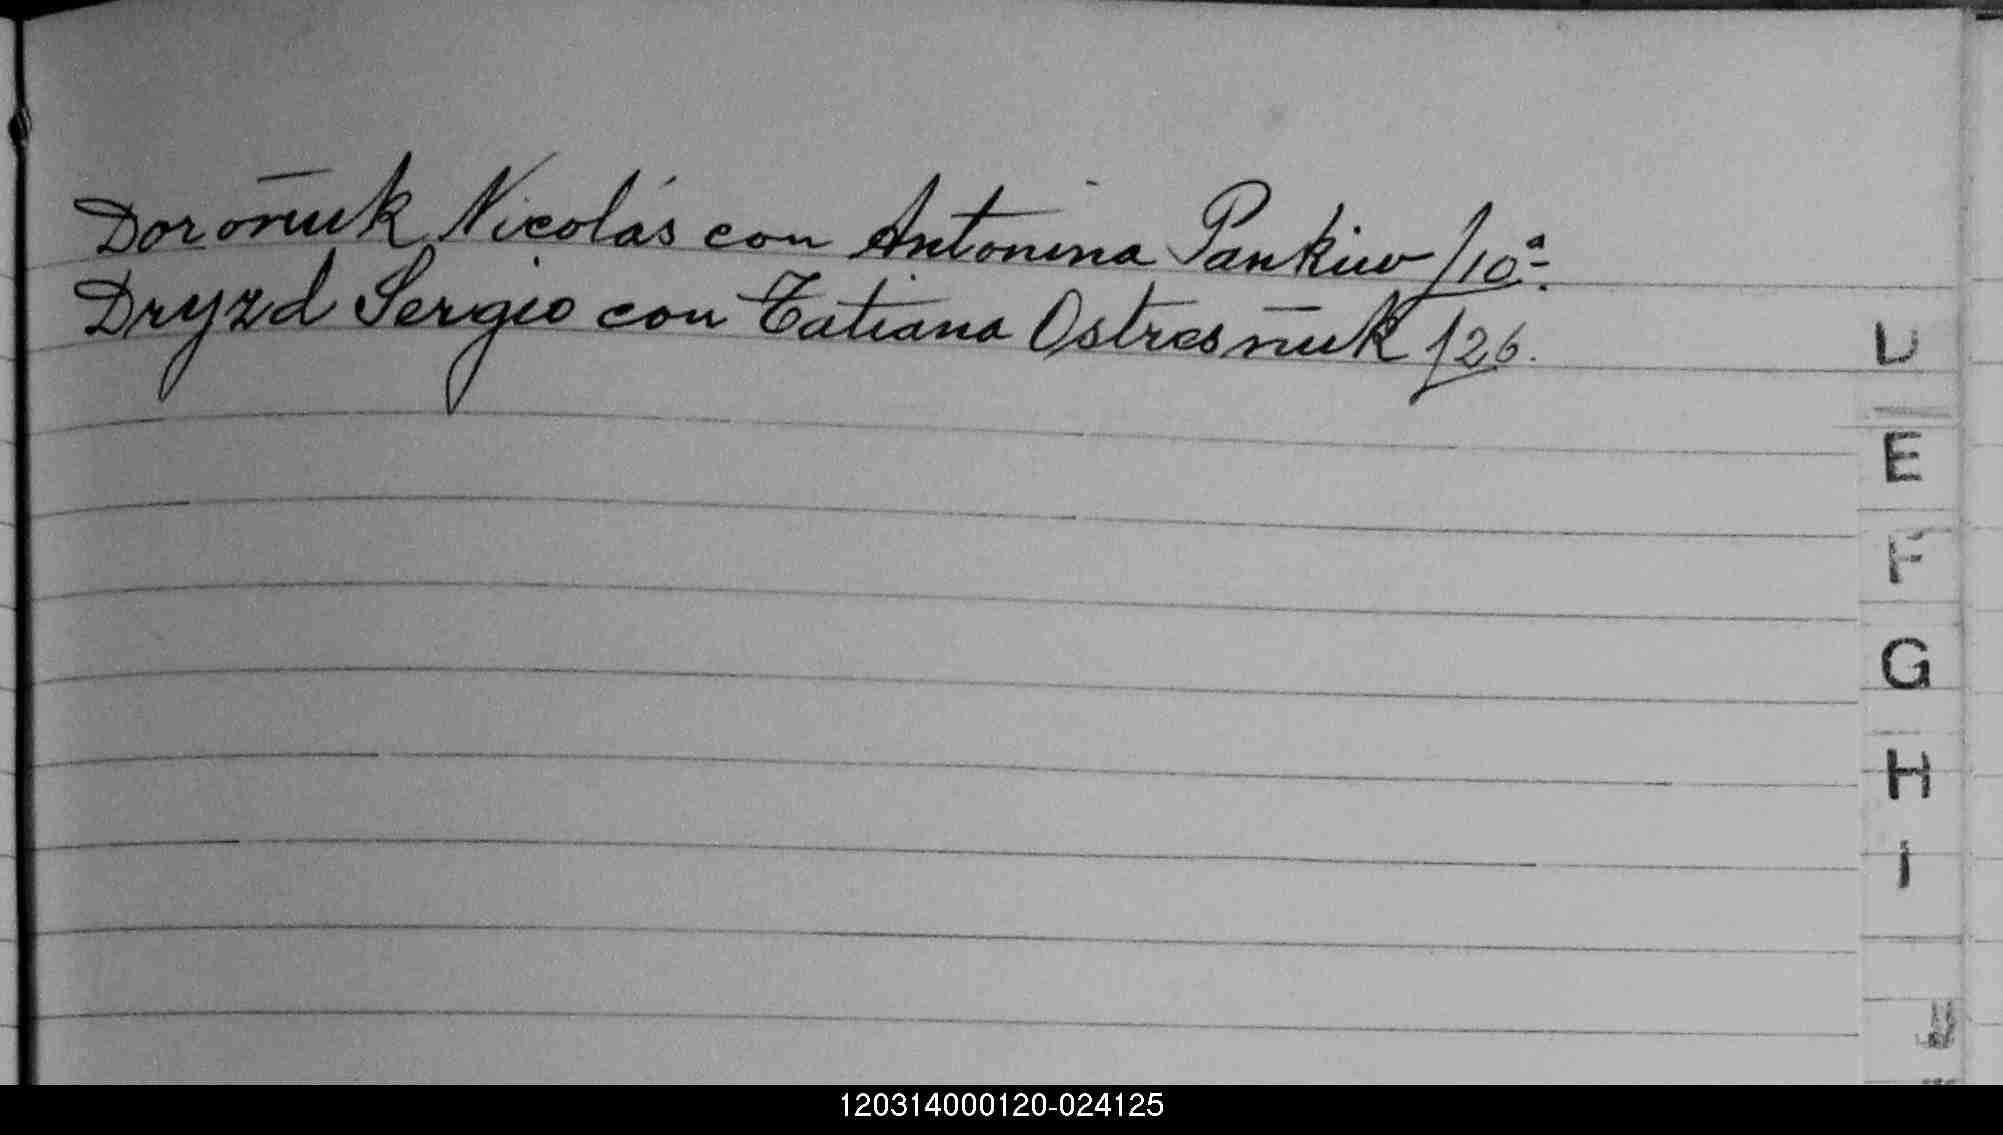 Doroñuk Nicolás con Antonina Pankiw f10ª.
Dryzd Sergio con Tatiana Ostresñuk f26.
D
E
F
G
H
I
J
120314000120-024125